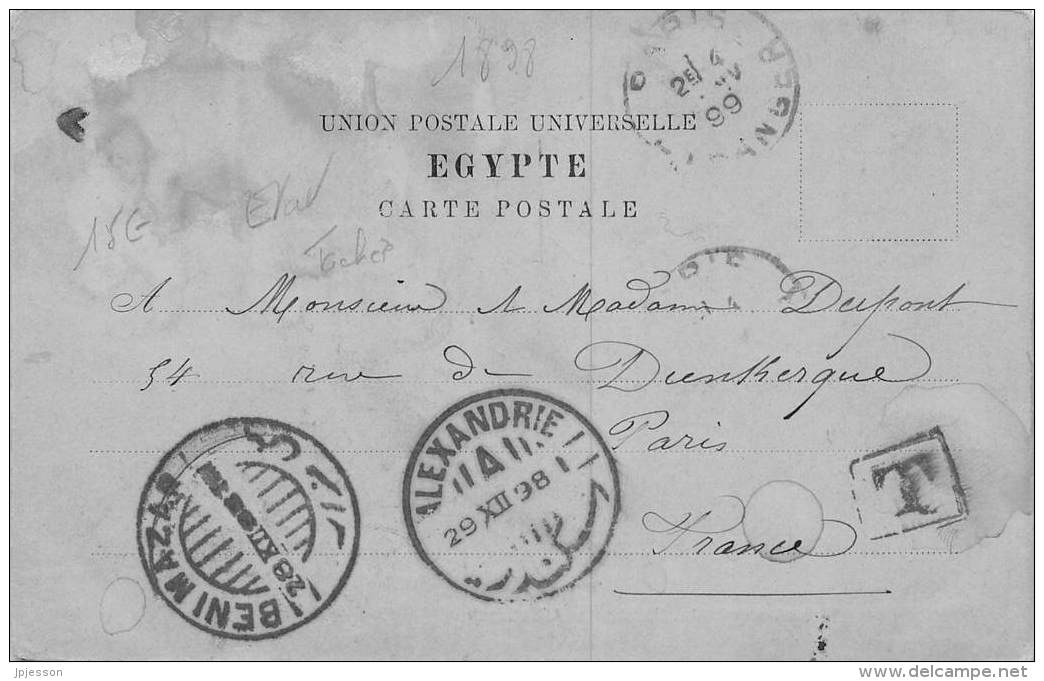 1898
PARIS
2E 4
99
ETRANGER
UNION POSTALE UNIVERSELLE
EGYPTE
CARTE POSTALE
15€
Etat
A Monsieur & Madame Dupont
54 rue de Dunkerque
Paris
France
ALEXANDRIE
29 XII 98
اسكندرية
BENI MAZAR
28 XII 98
T
jpjesson
www.delcampe.net